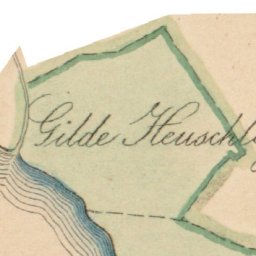 Gilde Heuschl